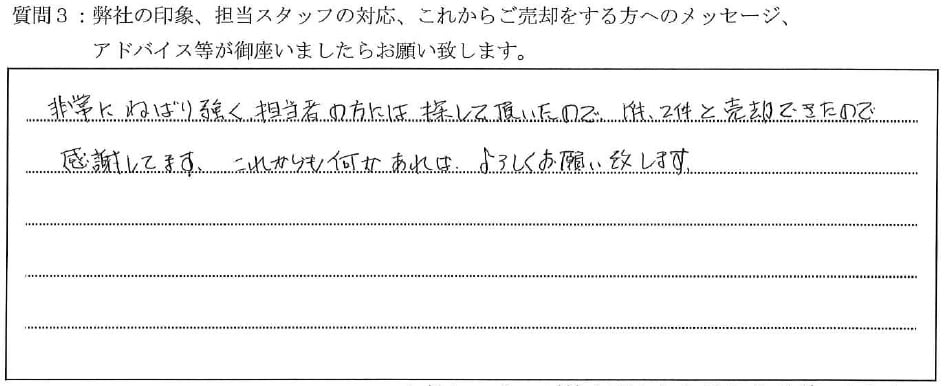 質問３：弊社の印象、担当スタッフの対応、これからご売却をする方へのメッセージ、
アドバイス等が御座いましたらお願い致します。
非常にねばり強く、担当者の方には探して頂いたので、1件、2件と売却できたので
感謝してます。これからも何かあれば、よろしくお願い致します。